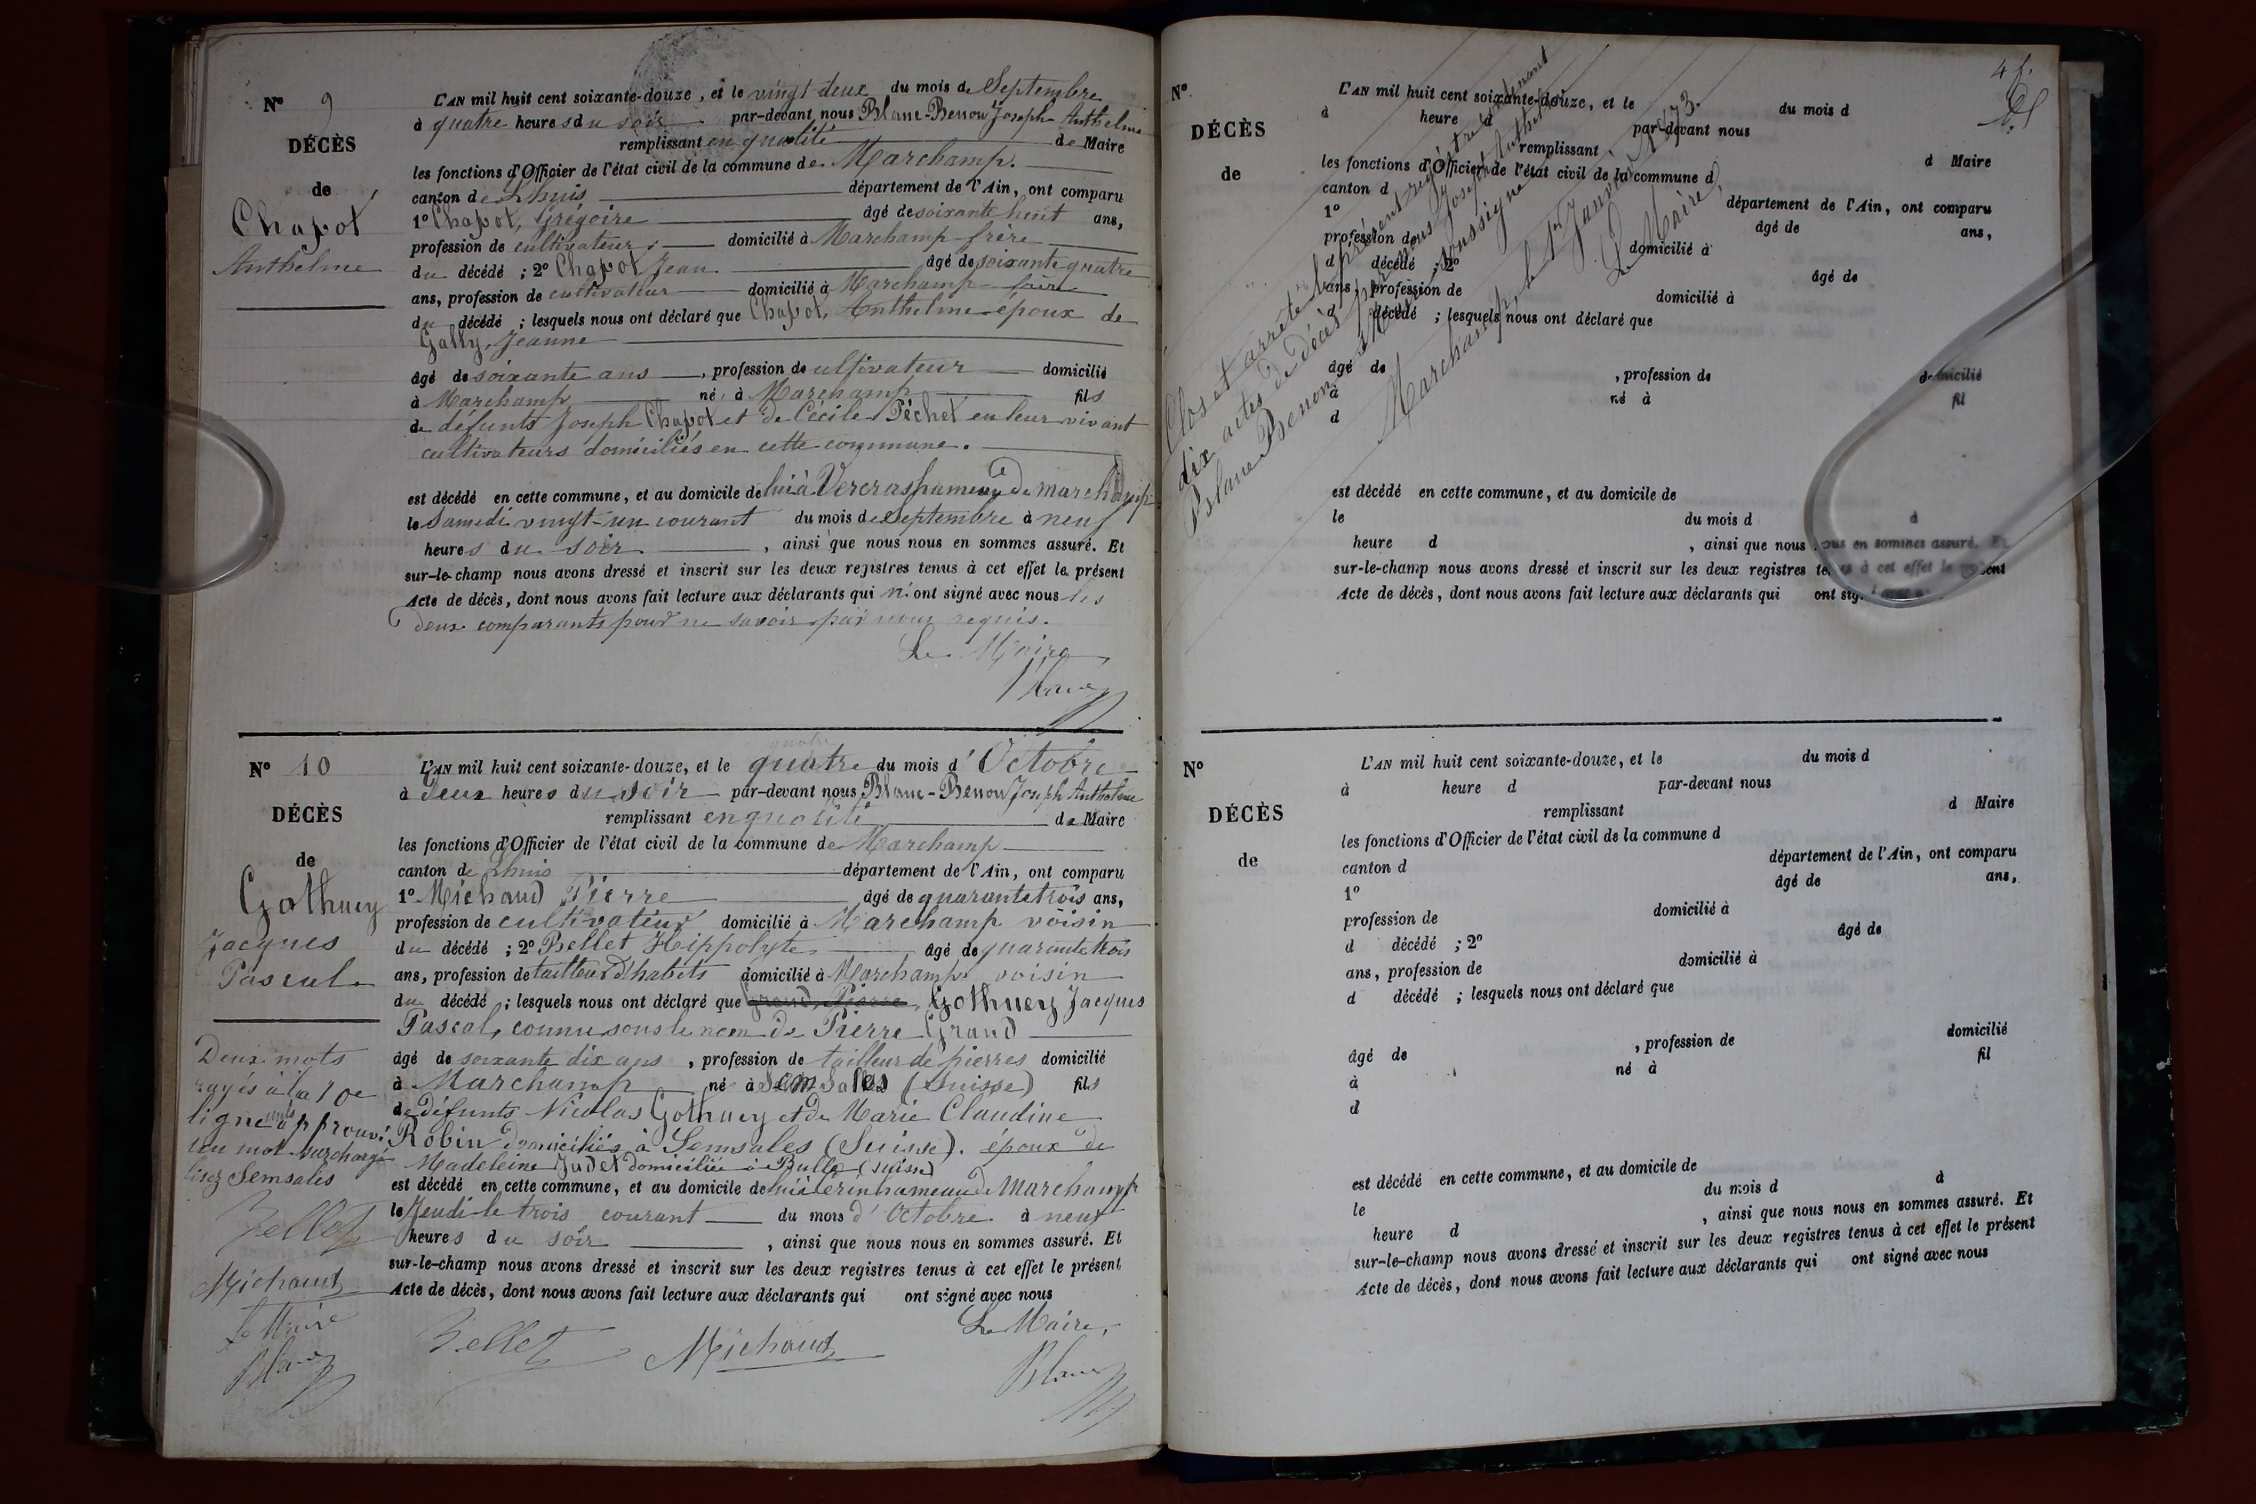 N° 9
DÉCÈS
de
Chapot
Anthelme
L'AN mil huit cent soixante-douze, et le vingt deux du mois de Septembre
à quatre heures du soir par-devant nous Blanc-Benon Joseph Anthelme
remplissant en qualité de Maire
les fonctions d'Officier de l'état civil de la commune de Marchamp.
canton de Lhuis département de l'Ain, ont comparu
1° Chapot, Grégoire âgé de soixante huit ans,
profession de cultivateur, domicilié à Marchamp frère
du décédé ; 2° Chapot Jean âgé de soixante quatre
ans, profession de cultivateur domicilié à Marchamp frère
du décédé ; lesquels nous ont déclaré que Chapot, Anthelme époux de
Gally, Jeanne
âgé de soixante ans, profession de cultivateur domicilié
à Marchamp né à Marchamp fils
de défunts Joseph Chapot et de Cécile Péchet en leur vivant
cultivateurs domiciliés en cette commune.
est décédé en cette commune, et au domicile de lui à Vercras hameau de Marchamp
le Samedi vingt-un courant du mois de Septembre à neuf
heures du soir, ainsi que nous nous en sommes assuré. Et
sur-le-champ nous avons dressé et inscrit sur les deux registres tenus à cet effet le présent
Acte de décès, dont nous avons fait lecture aux déclarants qui n'ont signé avec nous les
deux comparants pour ne savoir par nous requis.
Le Maire
Blanc
N° 10
DÉCÈS
de
Gothuey
Jacques
Pascal
Deux mots
rayés à la 10e
ligne nuls approuvé
un mot surchargé
lisez Semsales
Bellet
Michaud
Le Maire
Blanc
L'AN mil huit cent soixante-douze, et le quatre du mois d'Octobre
à deux heures du soir par-devant nous Blanc-Benon Joseph Anthelme
remplissant en qualité de Maire
les fonctions d'Officier de l'état civil de la commune de Marchamp
canton de Lhuis département de l'Ain, ont comparu
1° Michaud Pierre âgé de quarante trois ans,
profession de cultivateur domicilié à Marchamp voisin
du décédé ; 2° Bellet Hippolyte âgé de quarante trois
ans, profession de tailleur d'habits domicilié à Marchamp voisin
du décédé ; lesquels nous ont déclaré que Grand Pierre Gothuey Jacques
Pascal, connu sous le nom de Pierre Grand
âgé de soixante dix ans, profession de tailleur de pierres domicilié
à Marchamp né à Semsales (Suisse) fils
de défunts Nicolas Gothuey et de Marie Claudine
Robin domiciliés à Semsales (Suisse). époux de
Madeleine Judet domiciliée à Bulle (Suisse)
est décédé en cette commune, et au domicile de lui à Cérin hameau de Marchamp
le Jeudi le trois courant du mois d'Octobre à neuf
heures du soir, ainsi que nous nous en sommes assuré. Et
sur-le-champ nous avons dressé et inscrit sur les deux registres tenus à cet effet le présent
Acte de décès, dont nous avons fait lecture aux déclarants qui ont signé avec nous
Le Maire,
Bellet Michaud Blanc
N°
DÉCÈS
de
L'AN mil huit cent soixante-douze, et le du mois d
à heure d par-devant nous
remplissant d Maire
les fonctions d'Officier de l'état civil de la commune d
canton d département de l'Ain, ont comparu
1° âgé de ans,
profession de domicilié à
d décédé ; 2° âgé de
ans, profession de domicilié à
d décédé ; lesquels nous ont déclaré que
âgé de , profession de domicilié
à né à fil
d
est décédé en cette commune, et au domicile de
le du mois d à
heure d , ainsi que nous nous en sommes assuré. Et
sur-le-champ nous avons dressé et inscrit sur les deux registres tenus à cet effet le présent
Acte de décès, dont nous avons fait lecture aux déclarants qui ont signé
Clos et arrêté le présent registre contenant
dix actes de décès par nous Joseph Anthelme
Blanc Benon Maire soussigné
Marchamp, le 1er Janvier 1873.
Le Maire,
N°
DÉCÈS
de
L'AN mil huit cent soixante-douze, et le du mois d
à heure d par-devant nous
remplissant d Maire
les fonctions d'Officier de l'état civil de la commune d
canton d département de l'Ain, ont comparu
1° âgé de ans,
profession de domicilié à
d décédé ; 2° âgé de
ans, profession de domicilié à
d décédé ; lesquels nous ont déclaré que
âgé de , profession de domicilié
à né à fil
d
est décédé en cette commune, et au domicile de
le du mois d à
heure d , ainsi que nous nous en sommes assuré. Et
sur-le-champ nous avons dressé et inscrit sur les deux registres tenus à cet effet le présent
Acte de décès, dont nous avons fait lecture aux déclarants qui ont signé avec nous